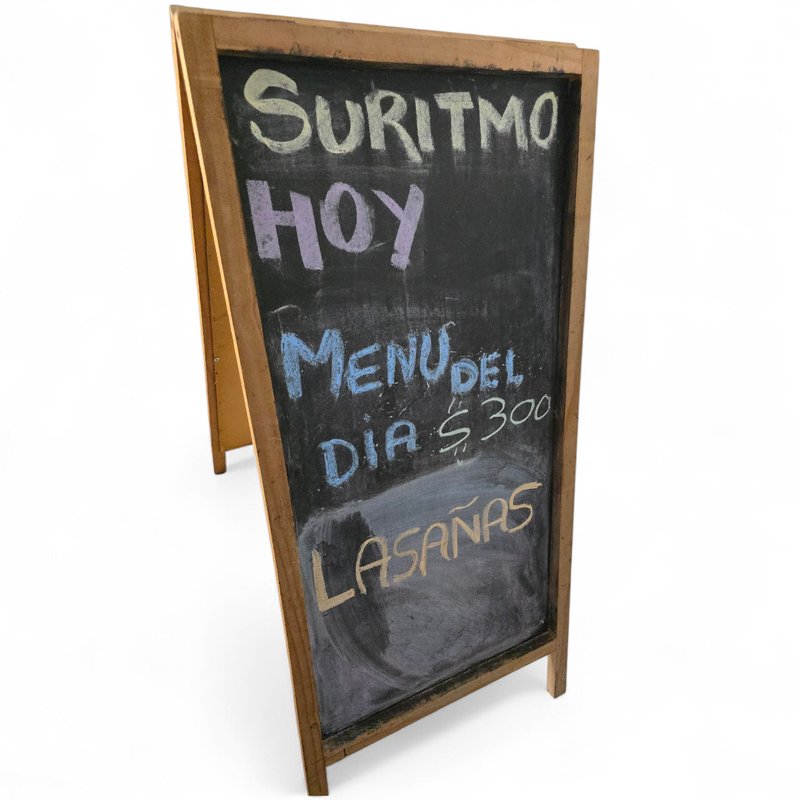 SURITMO
HOY
MENU DEL
DIA $300
LASAÑAS